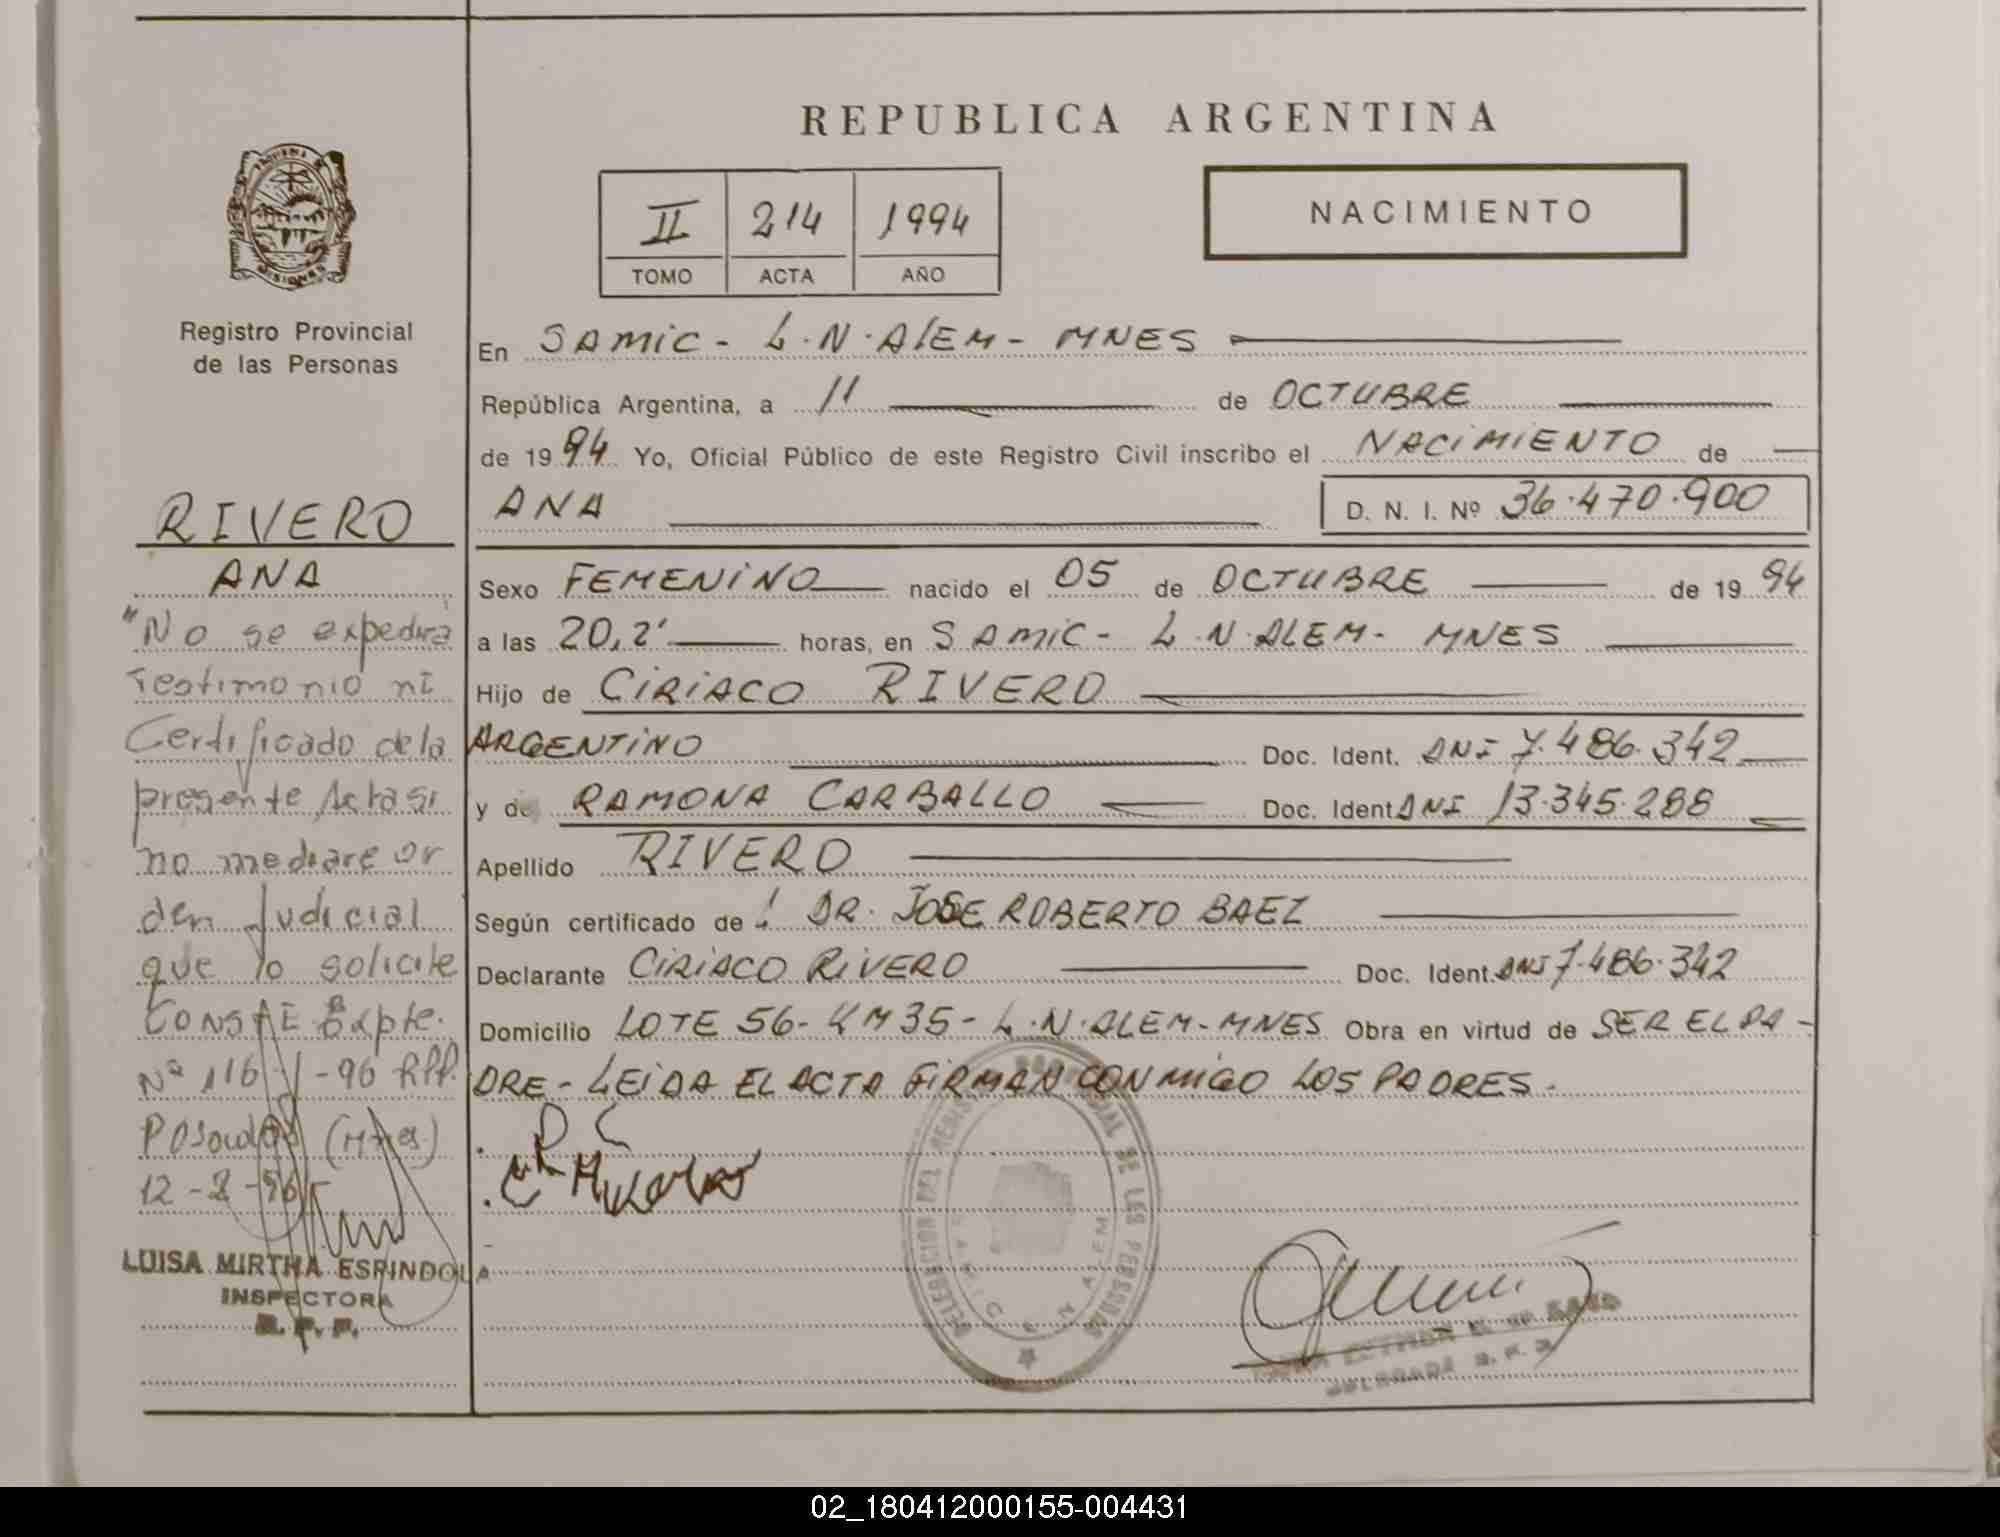 REPUBLICA ARGENTINA
II 214 1994
TOMO ACTA AÑO
NACIMIENTO
Registro Provincial
de las Personas
RIVERO
ANA
"No se expedira
Testimonio ni
Certificado de la
presente Acta si
no mediare or
den Judicial
que lo solicite
CONSTE Expte.
Nª 116 -96 RPP.
Posadas (Mnes.)
12-2-96
LUISA MIRTHA ESPINDOLA
INSPECTORA
R. P. P.
En SAMIC - L.N. ALEM - MNES
República Argentina, a 11 de OCTUBRE
de 1994 Yo, Oficial Público de este Registro Civil inscribo el NACIMIENTO de
ANA D. N. I. Nº 36.470.900
Sexo FEMENINO nacido el 05 de OCTUBRE de 1994
a las 20,2' horas, en SAMIC - L.N. ALEM - MNES
Hijo de CIRIACO RIVERO
ARGENTINO Doc. Ident. DNI 7.486.342
y de RAMONA CARBALLO Doc. Ident. DNI 13.345.288
Apellido RIVERO
Según certificado de DR. JOSE ROBERTO BAEZ
Declarante CIRIACO RIVERO Doc. Ident. DNI 7.486.342
Domicilio LOTE 56 - KM 35 - L.N. ALEM - MNES Obra en virtud de SER EL PA-
DRE - LEIDA EL ACTA FIRMAN CONMIGO LOS PADRES.
R C
DELEGACION DEL REGISTRO PROVINCIAL DE LAS PERSONAS
02_180412000155-004431